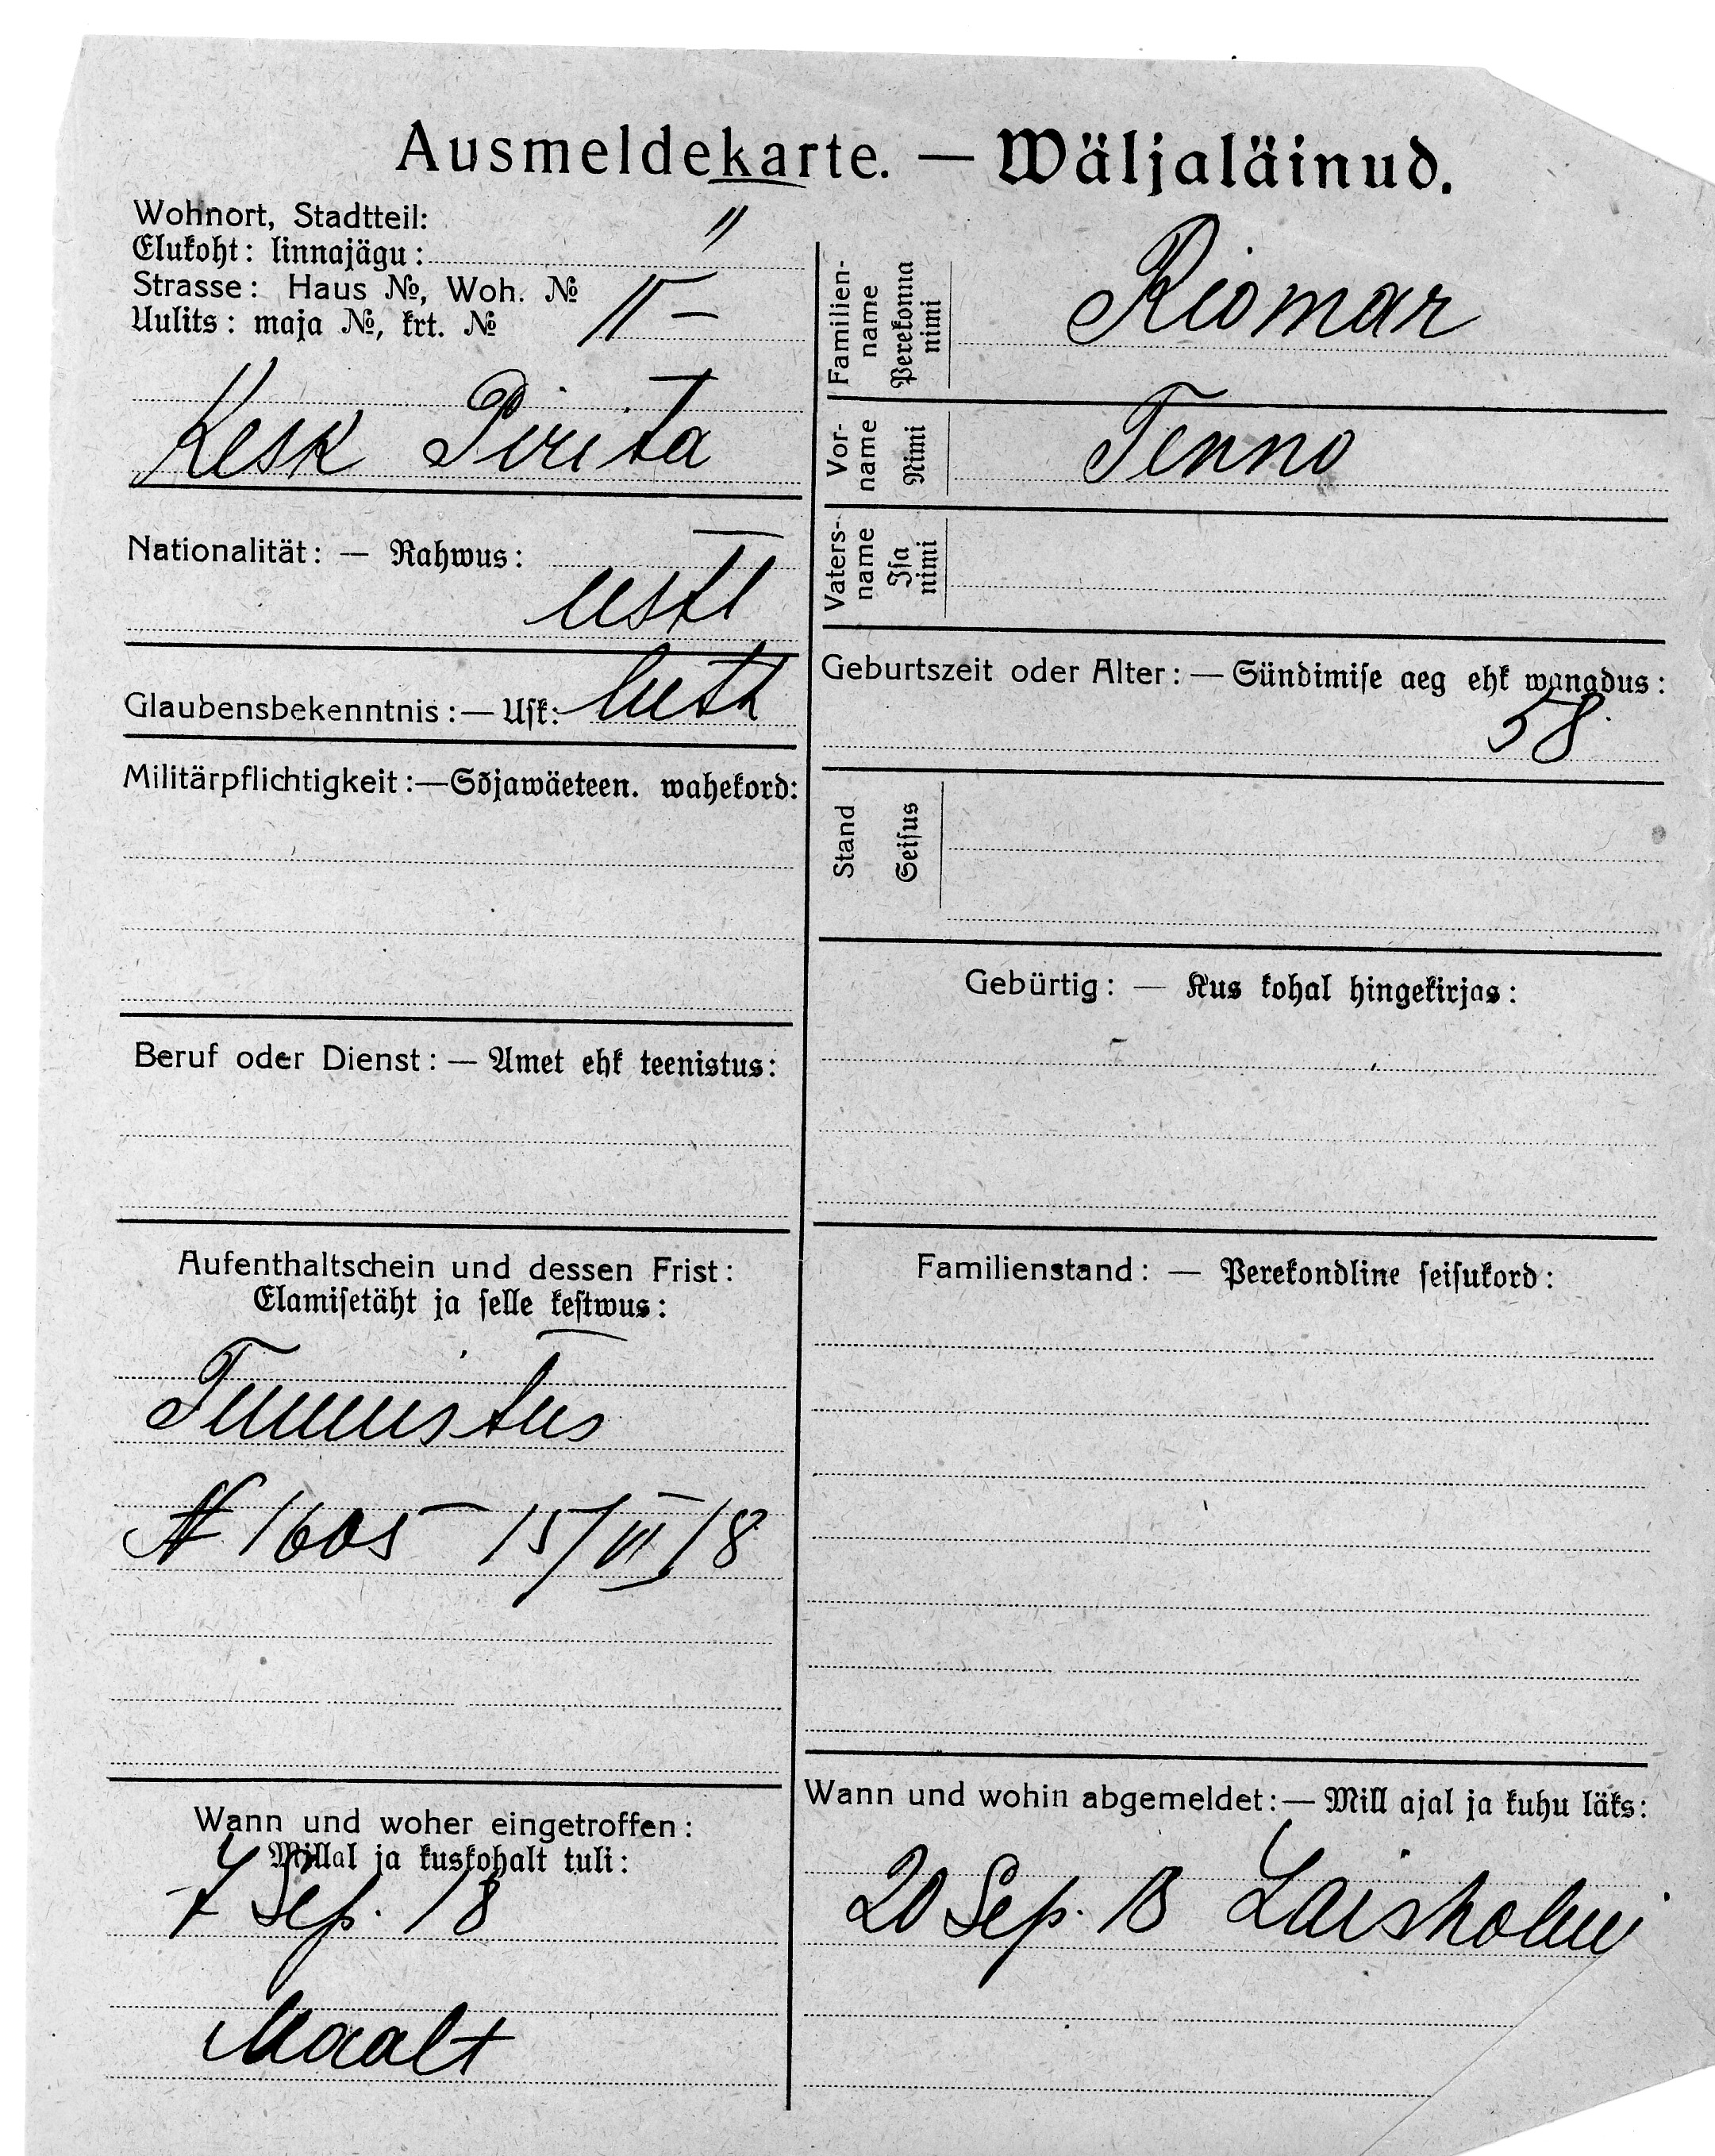 Ausmeldekarte. — Wäljaläinud.
Wohnort, Stadtteil:
Elukoht: linnajägu: "
Strasse: Haus №, Woh. №
Uulits: maja №, krt. №
Kesk Pirita
Nationalität: — Rahwus:
eestl
Glaubensbekenntnis: — Usk: luth
Militärpflichtigkeit: — Sõjawäeteen. wahekord:
Beruf oder Dienst: — Amet ehk teenistus:
Aufenthaltschein und dessen Frist:
Elamisetäht ja selle kestwus:
Tunnistus
№ 1605 15/VI 18
Wann und woher eingetroffen:
Millal ja kuskohalt tuli:
Sep. 18
Maalt
Familien-
name
Perekonna
nimi
Riomar
Vor-
name
Nimi
Tenno
Vaters-
name
Isa
nimi
Geburtszeit oder Alter: — Sündimise aeg ehk wanadus:
58
Stand
Seisus
Gebürtig: — Kus kohal hingekirjas:
Familienstand: — Perekondline seisukord:
Wann und wohin abgemeldet: — Mill ajal ja kuhu läks:
20 Sep. 18 Laisholmi